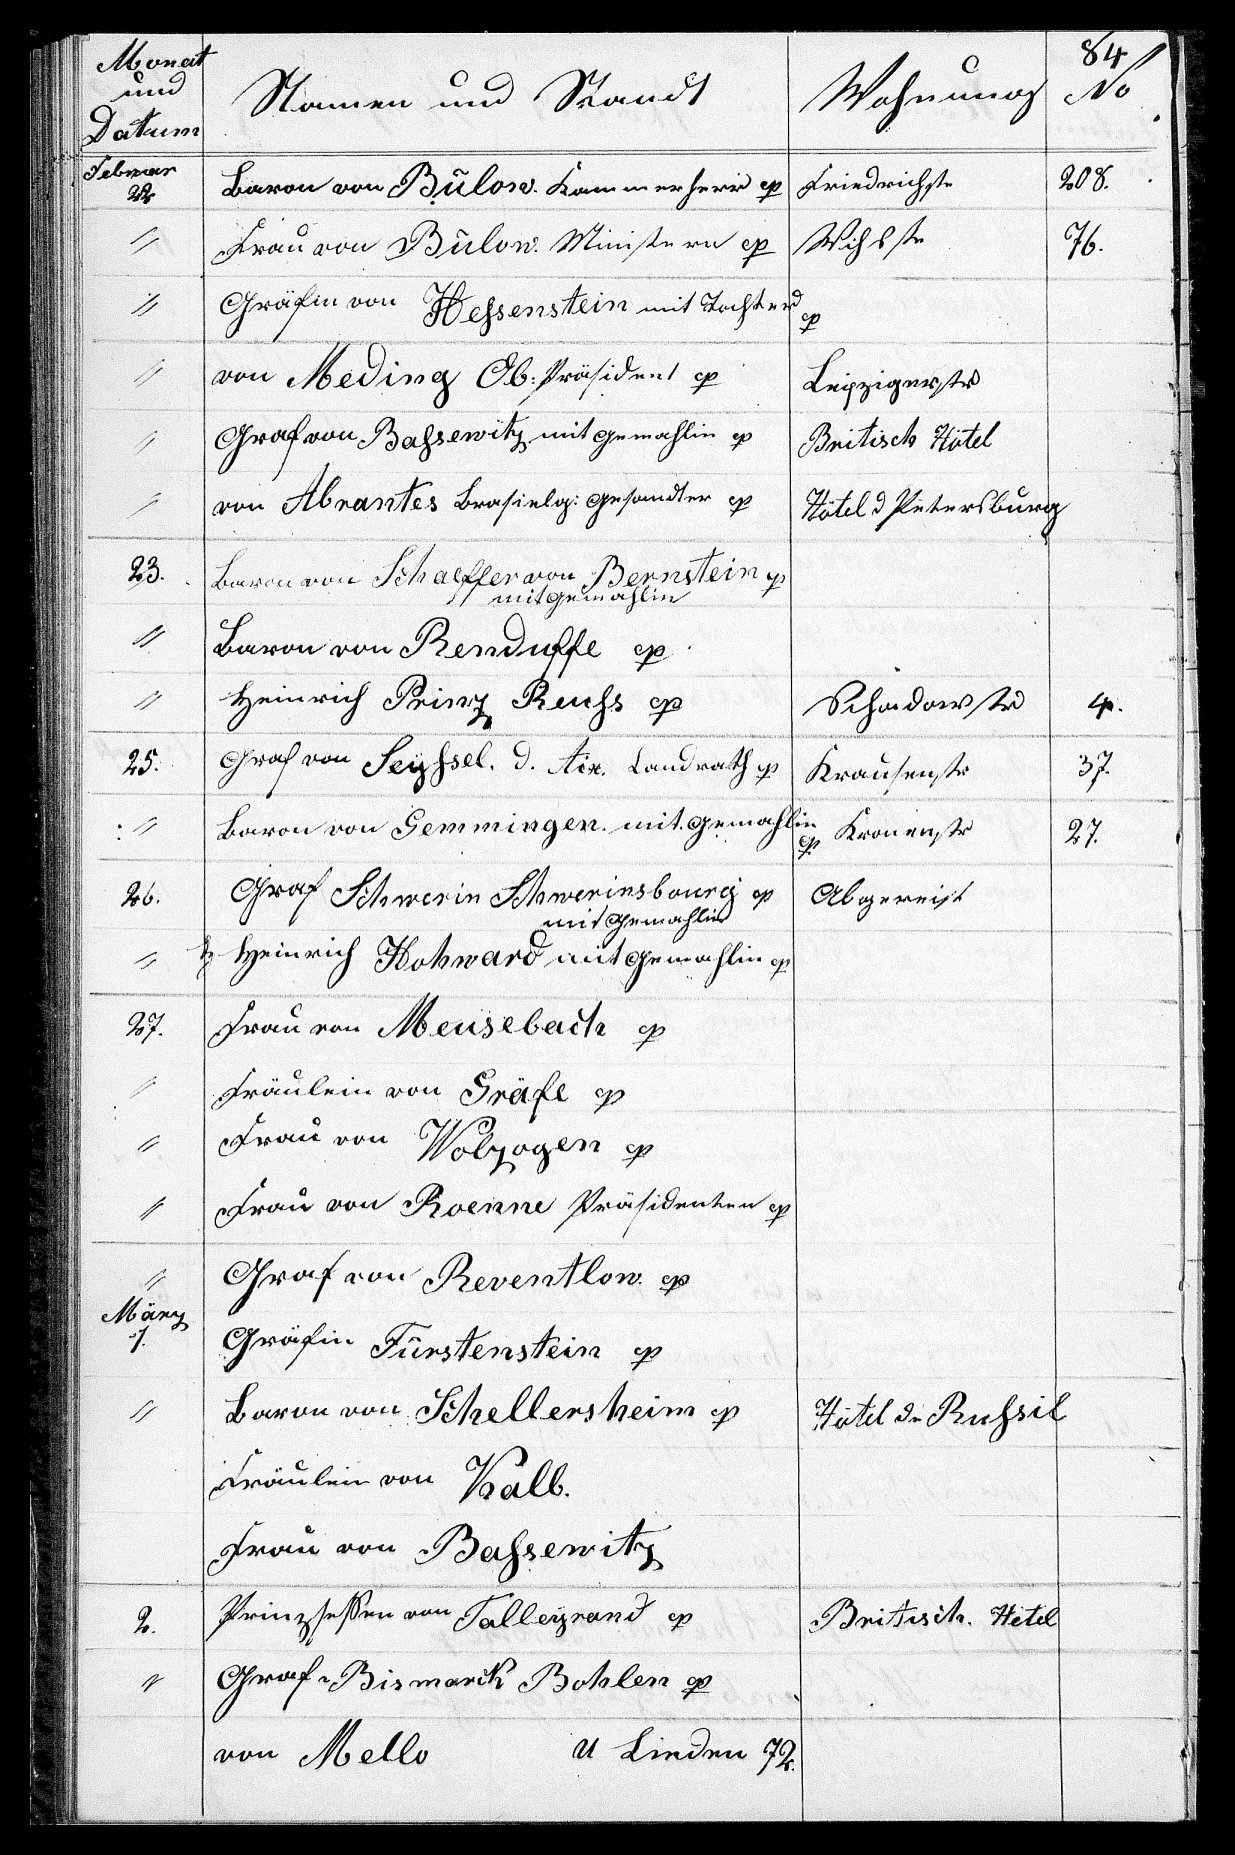 84
Monat und Datum Namen und Standt Wohnung No
Februar 22 Baron von Bülow. Kammerherr cp Friedrichstr 208.
" Frau von Bülow. Ministern cp Wihstr 76.
" Gräfin von Heſsenstein mit Tochter cp
" von Meding Ob: Präsident cp Leipzigerstr
" Graf von Baſsewitz mit Gemahlin cp Britisch Hôtel
" von Abrantes Brasielg: Gesandter cp Hôtel d Petersburg
23. Baron von Schaeffer von Bernstein cp
mit Gemahlin
" Baron von Renduffe cp
" Heinrich Prinz Reuſs cp Schadowstr 4.
25. Graf von Seyſsel. d. Aix. Landrath cp Krausenstr 37.
" Baron von Gemmingen. mit Gemahlin cp Kronenstr 27.
26. Graf Schwerin Schwerinsbourg cp Abgereist
mit Gemahlin
" Heinrich Hohward mit Gemahlin cp
27. Frau von Meusebach cp
" Fräulein von Gräfe cp
" Frau von Wolzogen cp
" Frau von Roenne Präsidenten cp
" Graf von Reventlow. cp
März 1. Gräfin Fürstenstein cp
" Baron von Schellersheim cp Hôtel de Ruſsie
Fräulein von Kalb.
Frau von Baſsewitz
2. Prinzseſsen von Talleyrand cp Britisch. Hôtel
" Graf v Bismarck Bohlen cp
von Mello U Linden 72.